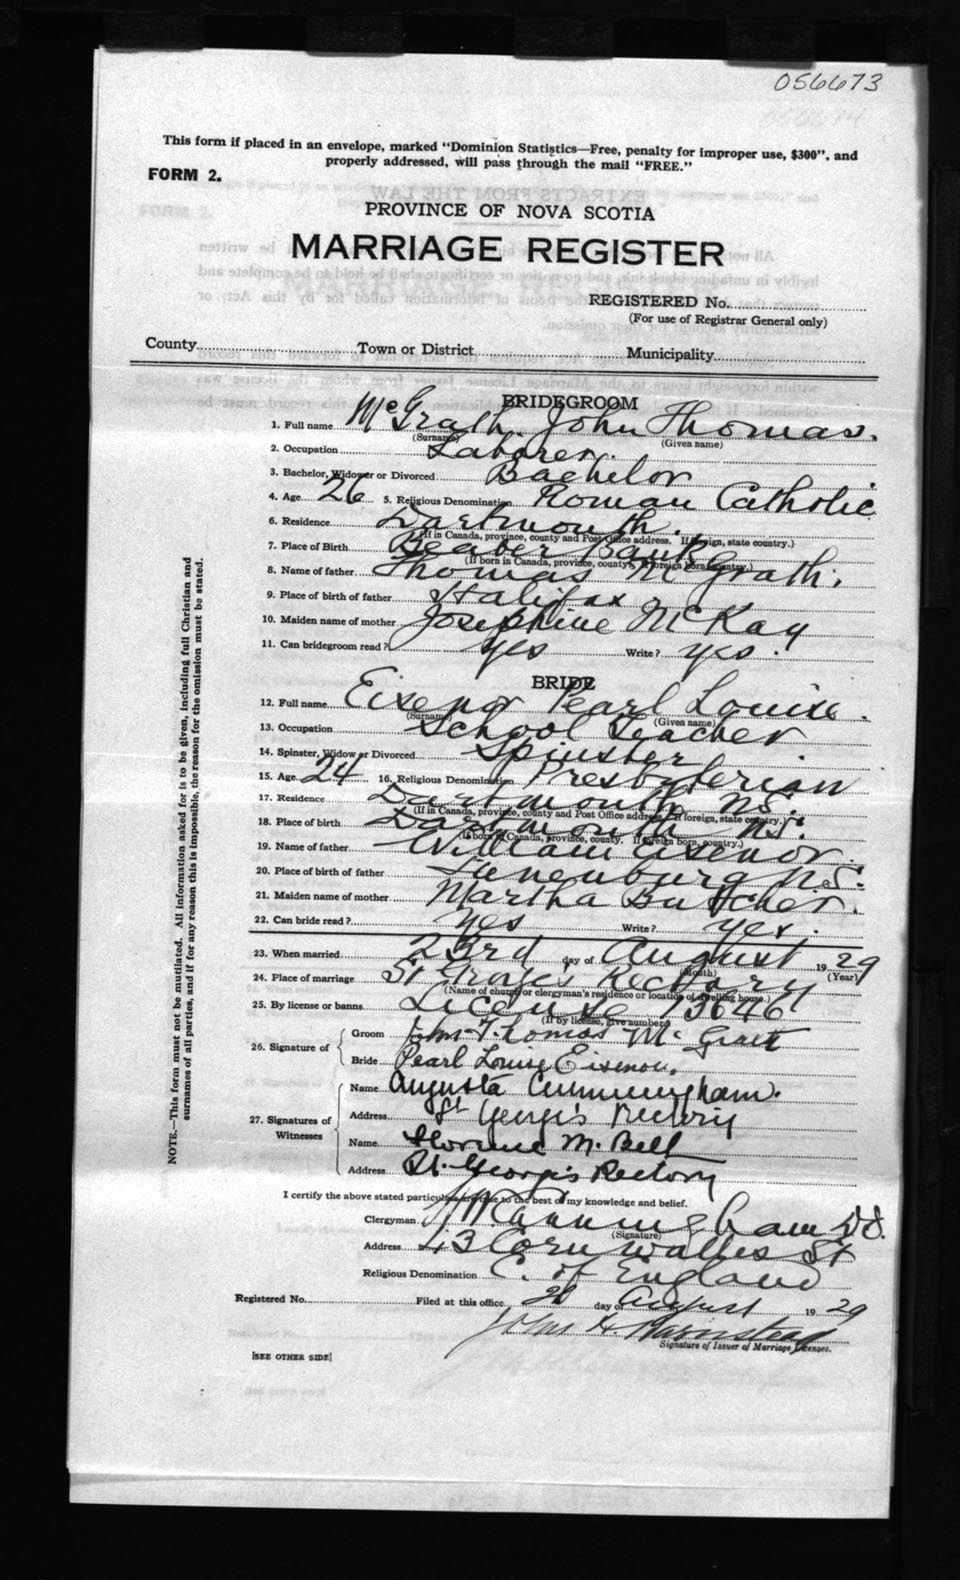 056673
This form if placed in an envelope, marked "Dominion Statistics—Free, penalty for improper use, $300", and
properly addressed, will pass through the mail "FREE."
FORM 2.
PROVINCE OF NOVA SCOTIA
MARRIAGE REGISTER
REGISTERED No.
(For use of Registrar General only)
County Town or District Municipality
BRIDEGROOM
1. Full name McGrath John Thomas.
(Surname) (Given name)
2. Occupation Laborer.
3. Bachelor, Widower or Divorced Bachelor
4. Age 26 5. Religious Denomination Roman Catholic
6. Residence Dartmouth.
(If in Canada, province, county and Post Office address. If foreign, state country.)
7. Place of Birth Beaver Bank
(If born in Canada, province, county. If foreign born, country.)
8. Name of father Thomas McGrath.
9. Place of birth of father Halifax
10. Maiden name of mother Josephine McKay
11. Can bridegroom read? yes Write? yes.
BRIDE
12. Full name Eisenor Pearl Louise.
(Surname) (Given name)
13. Occupation School Teacher
14. Spinster, Widow or Divorced Spinster
15. Age 24 16. Religious Denomination Presbyterian
17. Residence Dartmouth NS.
(If in Canada, province, county and Post Office address. If foreign, state country.)
18. Place of birth Dartmouth NS.
(If born in Canada, province, county. If foreign born, country.)
19. Name of father William Eisenor.
20. Place of birth of father Lunenburg N.S.
21. Maiden name of mother Martha Butcher.
22. Can bride read? yes Write? yes.
23. When married 23rd day of August 1929
(Month) (Year)
24. Place of marriage St George's Rectory
(Name of church or clergyman's residence or location of dwelling house.)
25. By license or banns License 13646
(If by license, give number)
26. Signature of Groom John Thomas McGrath
Bride Pearl Louise Eisenor.
27. Signatures of Witnesses Name Augusta Cunningham.
Address St George's Rectory
Name Florence M. Bell
Address St. George's Rectory
I certify the above stated particulars are true to the best of my knowledge and belief.
Clergyman Cunningham
(Signature)
Address 43 Cornwallis St
Religious Denomination C. of England
Registered No. Filed at this office 28 day of August 1929
John H.
Signature of Issuer of Marriage Licenses.
[SEE OTHER SIDE]
NOTE.—This form must not be mutilated. All information asked for is to be given, including full Christian and
surnames of all parties, and if for any reason this is impossible, the reason for the omission must be stated.